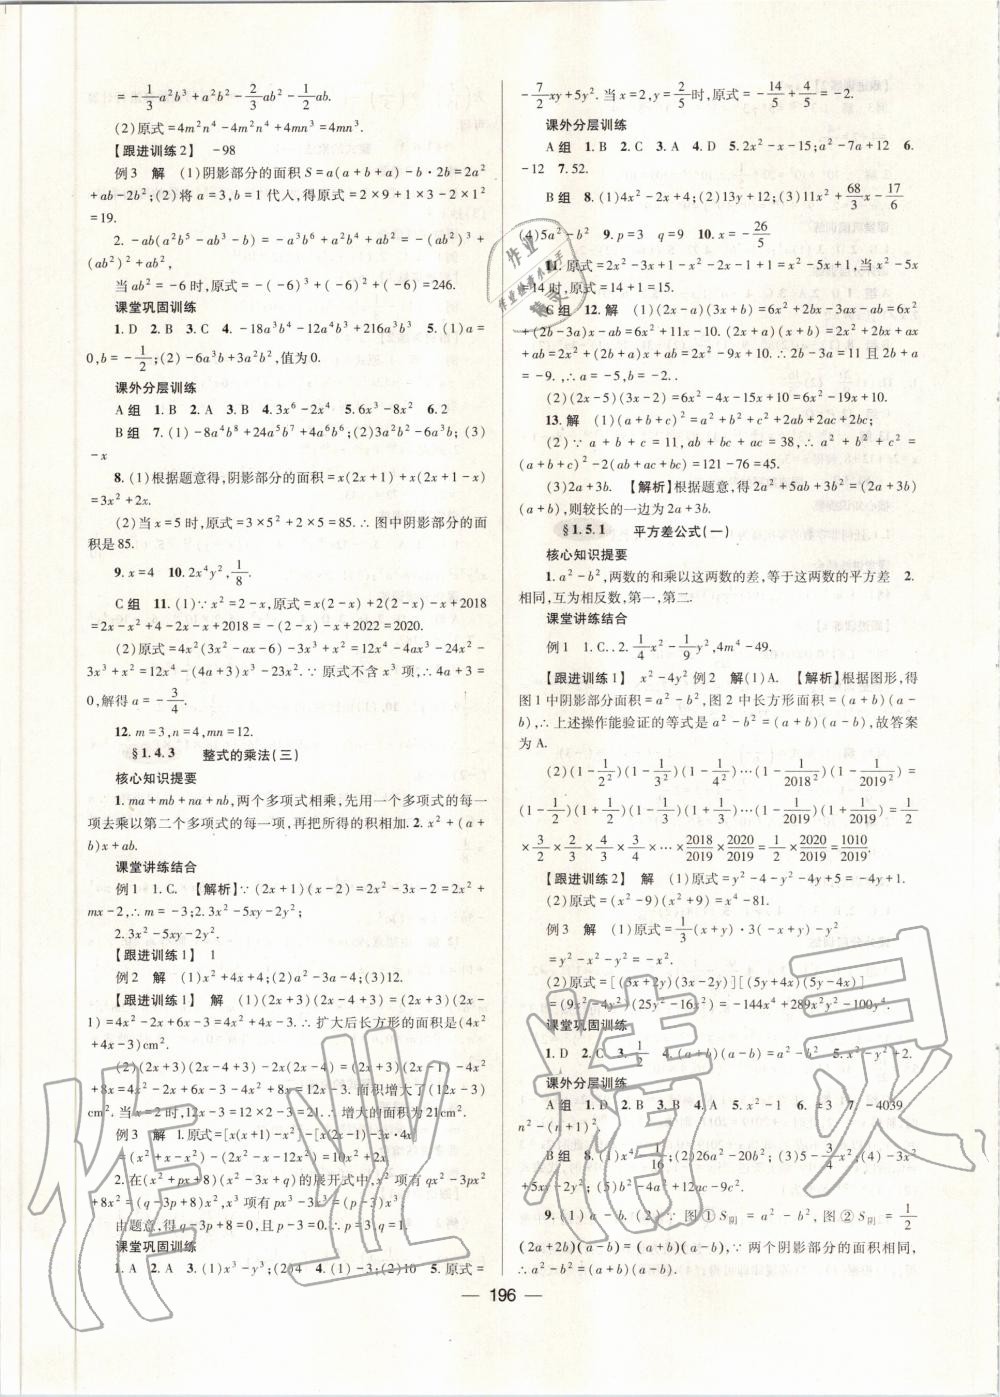 = -1/3a²b³+a²b²-2/3ab²-1/2ab.
(2)原式=4m²n⁴-4m²n⁴+4mn³=4mn³.
【跟进训练2】 -98
例3 解 (1)阴影部分的面积S=a(a+b+a)-b·2b=2a²
+ab-2b²;(2)将a=3,b=1代人,得原式=2×9+1×3-2×1²
=19.
2. -ab(a²b⁵-ab³-b)=-a³b⁶+a²b⁴+ab²=-(ab²)³+
(ab²)²+ab²,
当ab²=-6时,原式=-(-6)³+(-6)²+(-6)=246.
课堂巩固训练
1. D 2. B 3. C 4. -18a³b⁴-12a⁴b³+216a³b³ 5. (1)a=
0,b=-1/2;(2)-6a³b+3a²b²,值为0.
课外分层训练
A组 1. B 2. A 3. B 4. 3x⁶-2x⁴ 5. 6x³-8x² 6. 2
B组 7. (1)-8a⁴b⁸+24a⁵b⁷+4a⁶b⁶;(2)3a²b²-6a³b;(3)
-x
8. (1)根据题意得,阴影部分的面积=x(2x+1)+x(2x+1-x)=
3x²+2x.
(2)当x=5时,原式=3×5²+2×5=85.∴图中阴影部分的面
积是85.
9. x=4 10. 2x⁴y²,1/8.
C组 11. (1)∵x²=2-x,原式=x(2-x)+2(2-x)-x+2018
=2x-x²+4-2x-x+2018=-(2-x)-x+2022=2020.
(2)原式=4x²(3x²-ax-6)-3x³+x²=12x⁴-4ax³-24x²-
3x³+x²=12x⁴-(4a+3)x³-23x².∵原式不含x³项,∴4a+3=
0,解得a=-3/4.
12. m=3,n=4,mn=12.
§1.4.3 整式的乘法(三)
核心知识提要
1. ma+mb+na+nb,两个多项式相乘,先用一个多项式的每一
项去乘以第二个多项式的每一项,再把所得的积相加. 2. x²+(a+
b)x+ab.
课堂讲练结合
例1 1. C. 【解析】∵(2x+1)(x-2)=2x²-3x-2=2x²+
mx-2,∴m=-3;2. 3x²-5xy-2y²;
2. 3x²-5xy-2y².
【跟进训练1】 1
例2 解 (1)x²+4x+4;(2)3a-4;(3)12.
【跟进训练1】 解 (1)(2x+3)(2x-4+3)=(2x+3)(2x-
1)=4x²-2x+6x-3=4x²+4x-3.∴扩大后长方形的面积是(4x²
+4x-3)cm².
(2)(2x+3)(2x-4+3)-2x(2x-4)=(2x+3)(2x-1)-4x²
+8x=4x²-2x+6x-3-4x²+8x=12x-3.面积增大了(12x-3)
cm².当x=2时,12x-3=12×2-3=21.∴增大的面积为21cm².
例3 解 1. 原式=[x(x+1)-x²]-[x(2x-1)-3x·4x]
=(x²+x-x²)-(2x²-x-12x²)=10x²+2x
2. 在(x²+px+8)(x²-3x+q)的展开式中,x²项有qx²-3px²
+8x²=(q-3p+8)x²,x³项有px³-3x³=(p-3)x³
由题意,得q-3p+8=0,且p-3=0.∴p=3,q=1.
课堂巩固训练
1. A 2. A 3. (1)x³-y³;(2)4 4. (1)-3;(2)10 5. 原式=
-7/2xy+5y².当x=2,y=2/5时,原式=-14/5+4/5=-2.
课外分层训练
A组 1. B 2. C 3. A 4. D 5. 2x²-x-15;a²-7a+12 6.
-12 7. 52.
B组 8. (1)4x²-2x-2;(2)13y+12;(3)11x²+68/3x-17/6
(4)5a²-b² 9. p=3 q=9 10. x=-26/5
11. 原式=2x²-3x+1-x²-2x-1+1=x²-5x+1,当x²-5x
=14时,原式=14+1=15.
C组 12. 解 (1)(2x-a)(3x+b)=6x²+2bx-3ax-ab=6x²
+(2b-3a)x-ab=6x²+11x-10.(2x+a)(x+b)=2x²+2bx+ax
+ab=2x²+(2b+a)x+ab=2x²-9x+10.∴2b-3a=11且2b+a
=-9.,∴a=-5,b=-2..
(2)(2x-5)(3x-2)=6x²-4x-15x+10=6x²-19x+10.
13. 解 (1)(a+b+c)²=a²+b²+c²+2ab+2ac+2bc;
(2)∵a+b+c=11,ab+bc+ac=38,∴a²+b²+c²=
(a+b+c)²-2(ab+ac+bc)=121-76=45.
(3)2a+3b. 【解析】根据题意,得2a²+5ab+3b²=(2a+3b)
(a+b),则较长的一边为2a+3b.
§1.5.1 平方差公式(一)
核心知识提要
1. a²-b²,两数的和乘以这两数的差,等于这两数的平方差 2.
相同,互为相反数,第一,第二.
课堂讲练结合
例1 1. C.. 2. 1/4x²-1/9y²,4m⁴-49.
【跟进训练1】 x²-4y² 例2 解(1)A. 【解析】根据图形,得
图1中阴影部分面积=a²-b²,图2中长方形面积=(a+b)(a-
b),∴上述操作能验证的等式是a²-b²=(a+b)(a-b),故答案
为A.
(2)(1-1/2²)(1-1/3²)(1-1/4²)⋯(1-1/2018²)(1-1/2019²)=
(1-1/2)(1+1/2)(1-1/3)(1+1/3)⋯(1-1/2019)(1+1/2019)=1/2
×3/2×2/3×4/3×⋯×2018/2019×2020/2019=1/2×2020/2019=1010/2019.
【跟进训练2】 解 (1)原式=y²-4-y²-4y+5=-4y+1.
(2)原式=(x²-9)(x²+9)=x⁴-81.
例3 解 (1)原式=1/3(x+y)·3(x-y)-y²
=x²-y²-y²=-x².
(2)原式=[(3x+2y)(3x-2y)][(5y+4x)(5y-4x)]
=(9x²-4y²)(25y²-16x²)=-144x⁴+289x²y²-100y⁴.
课堂巩固训练
1. D 2. C 3. 1/2 4. (a+b)(a-b)=a²-b² 5. x²-y²+2.
课外分层训练
A组 1. D 2. B 3. B 4. A 5. x²-1 6. ±3 7. -4039,
n²-(n+1)².
B组 8. (2)26a²-20b²;(3)5-3/4x²;(4)-3x²
+5xy-2y²;(5)b²-4a²+12ac-9c².
9. (1)a-b. (2)∵图①S阴=a²-b²,图②S阴=1/2
(2a+2b)(a-b)=(a+b)(a-b),∵两个阴影部分的面积相同,
∴a²-b²=(a+b)(a-b).
— 196 —
作业精灵